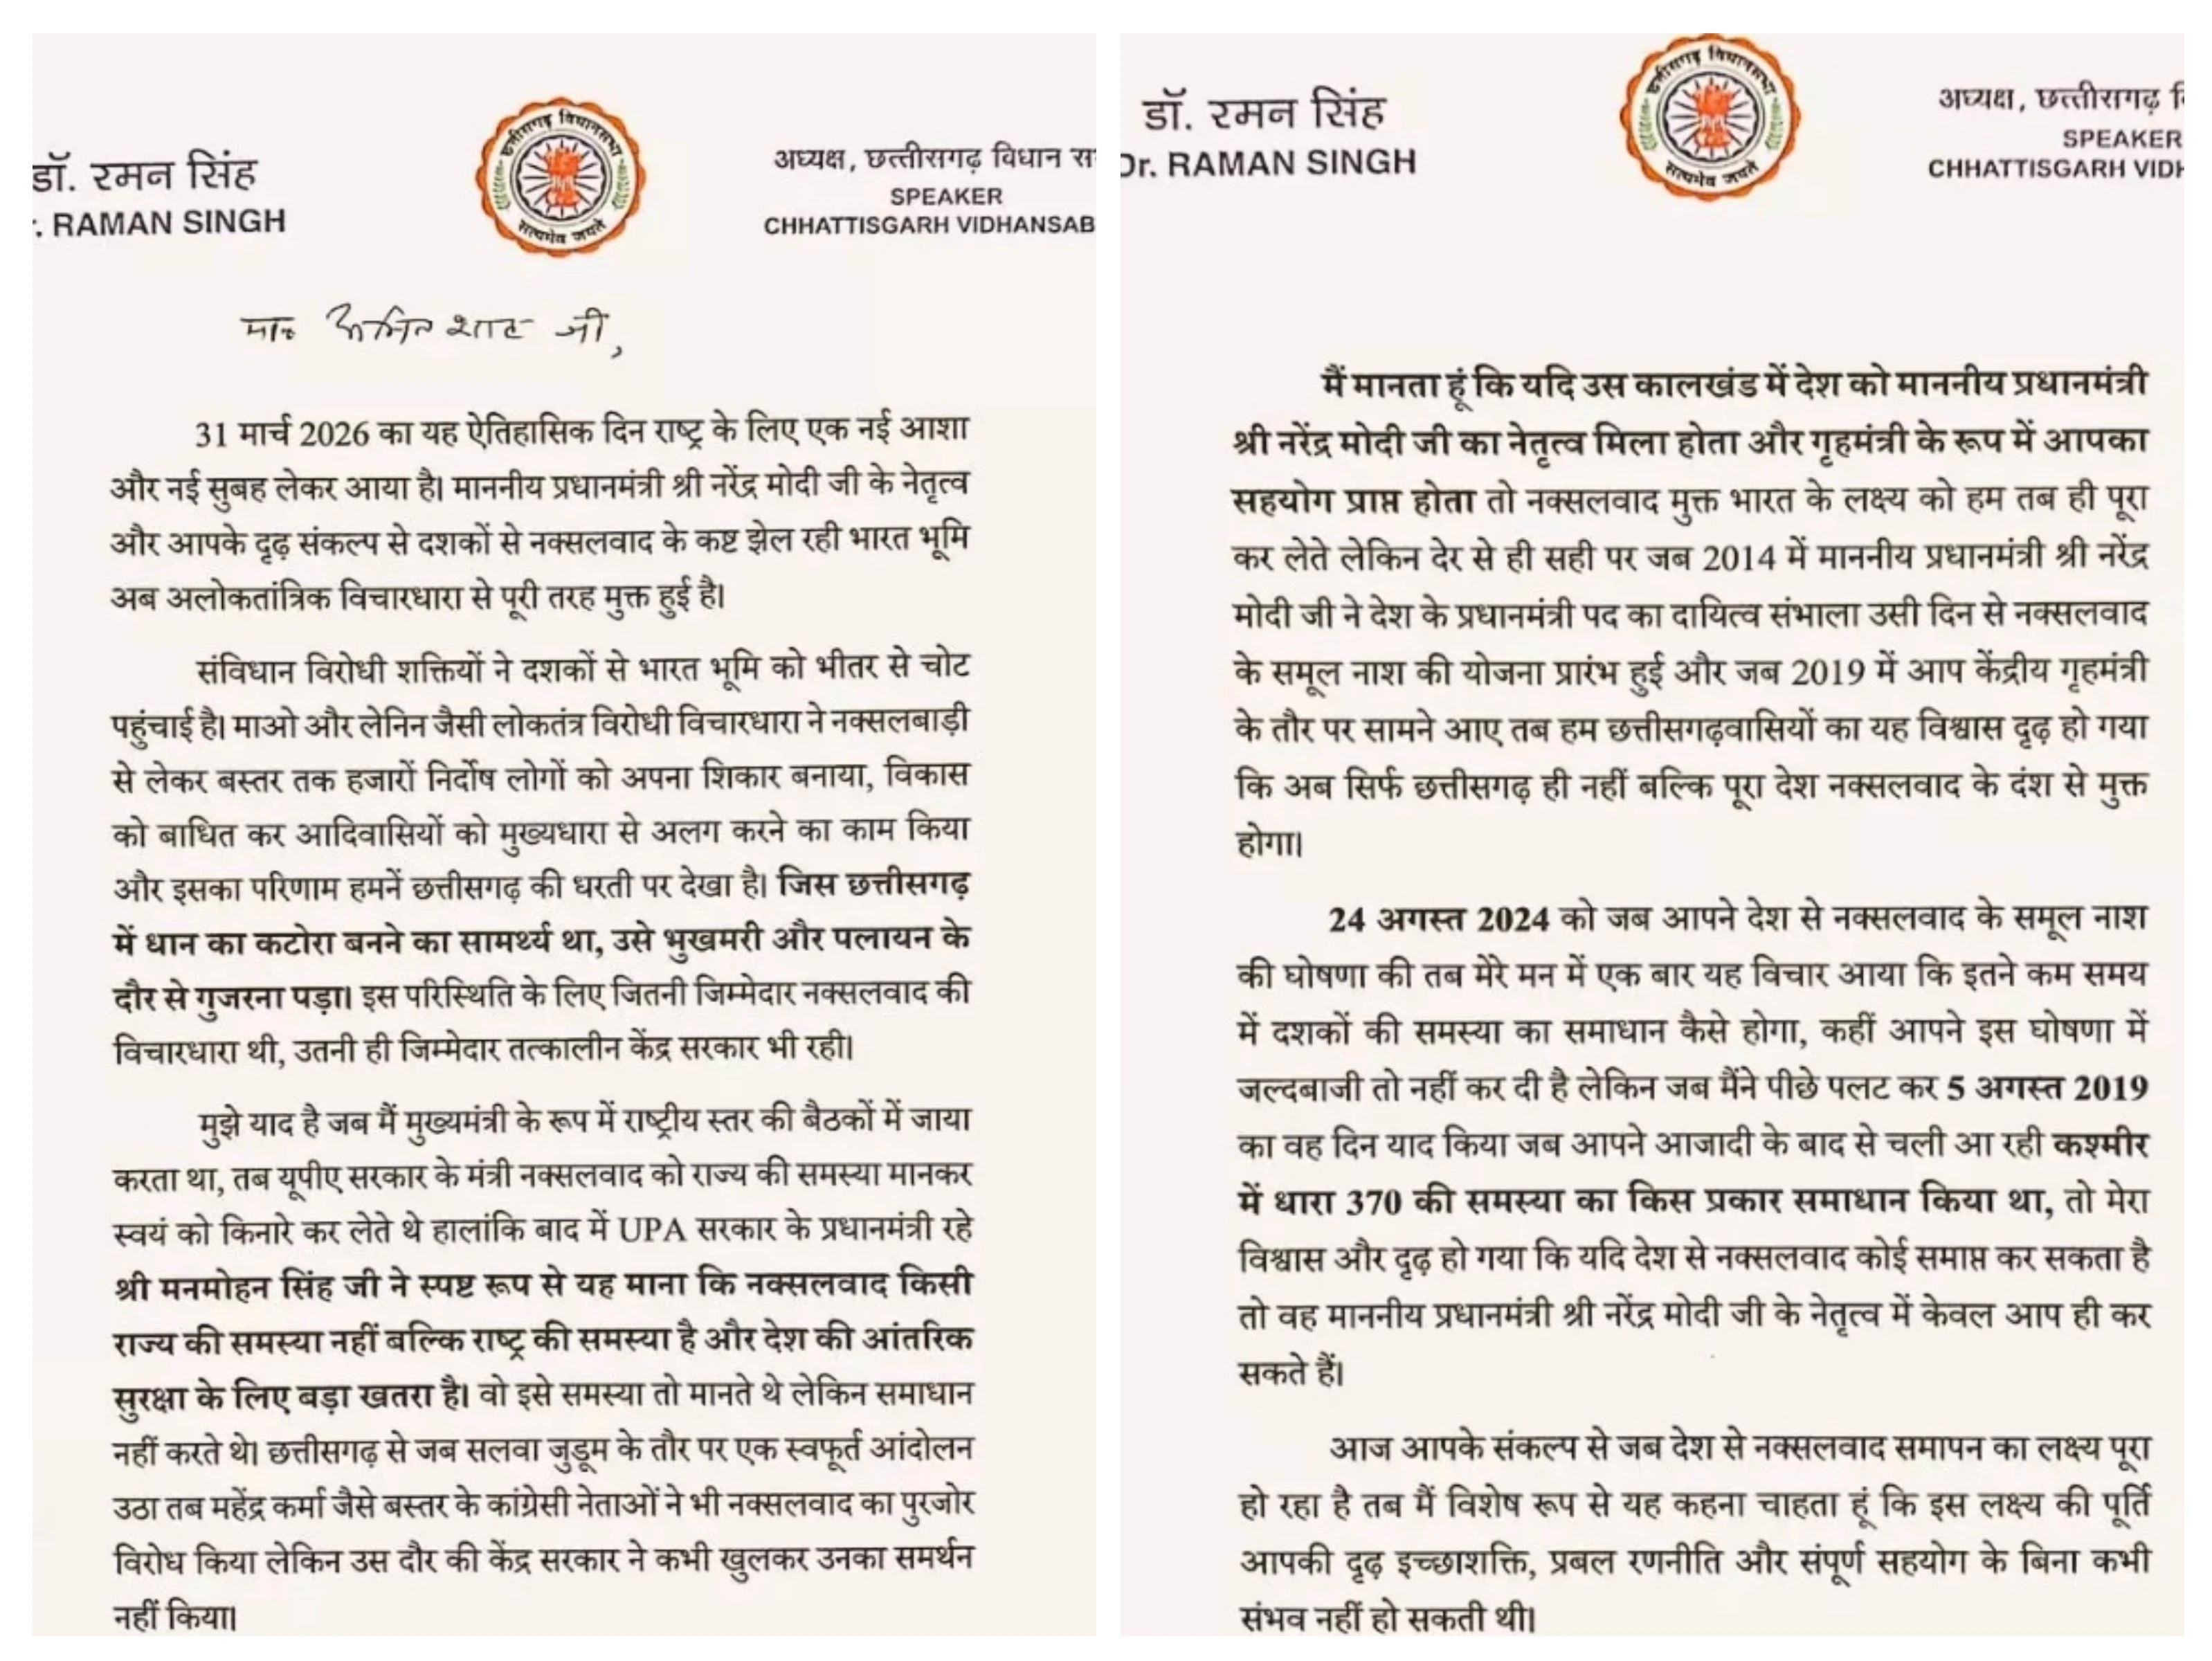 डॉ. रमन सिंह
. RAMAN SINGH
छत्तीसगढ़ विधानसभा
सत्यमेव जयते
अध्यक्ष, छत्तीसगढ़ विधान स
SPEAKER
CHHATTISGARH VIDHANSAB
मान० अमित शाह जी,
31 मार्च 2026 का यह ऐतिहासिक दिन राष्ट्र के लिए एक नई आशा
और नई सुबह लेकर आया है। माननीय प्रधानमंत्री श्री नरेंद्र मोदी जी के नेतृत्व
और आपके दृढ़ संकल्प से दशकों से नक्सलवाद के कष्ट झेल रही भारत भूमि
अब अलोकतांत्रिक विचारधारा से पूरी तरह मुक्त हुई है।
संविधान विरोधी शक्तियों ने दशकों से भारत भूमि को भीतर से चोट
पहुंचाई है। माओ और लेनिन जैसी लोकतंत्र विरोधी विचारधारा ने नक्सलबाड़ी
से लेकर बस्तर तक हजारों निर्दोष लोगों को अपना शिकार बनाया, विकास
को बाधित कर आदिवासियों को मुख्यधारा से अलग करने का काम किया
और इसका परिणाम हमनें छत्तीसगढ़ की धरती पर देखा है। जिस छत्तीसगढ़
में धान का कटोरा बनने का सामर्थ्य था, उसे भुखमरी और पलायन के
दौर से गुजरना पड़ा। इस परिस्थिति के लिए जितनी जिम्मेदार नक्सलवाद की
विचारधारा थी, उतनी ही जिम्मेदार तत्कालीन केंद्र सरकार भी रही।
मुझे याद है जब मैं मुख्यमंत्री के रूप में राष्ट्रीय स्तर की बैठकों में जाया
करता था, तब यूपीए सरकार के मंत्री नक्सलवाद को राज्य की समस्या मानकर
स्वयं को किनारे कर लेते थे हालांकि बाद में UPA सरकार के प्रधानमंत्री रहे
श्री मनमोहन सिंह जी ने स्पष्ट रूप से यह माना कि नक्सलवाद किसी
राज्य की समस्या नहीं बल्कि राष्ट्र की समस्या है और देश की आंतरिक
सुरक्षा के लिए बड़ा खतरा है। वो इसे समस्या तो मानते थे लेकिन समाधान
नहीं करते थे। छत्तीसगढ़ से जब सलवा जुडूम के तौर पर एक स्वफूर्त आंदोलन
उठा तब महेंद्र कर्मा जैसे बस्तर के कांग्रेसी नेताओं ने भी नक्सलवाद का पुरजोर
विरोध किया लेकिन उस दौर की केंद्र सरकार ने कभी खुलकर उनका समर्थन
नहीं किया।
डॉ. रमन सिंह
Dr. RAMAN SINGH
छत्तीसगढ़ विधानसभा
सत्यमेव जयते
अध्यक्ष, छत्तीसगढ़ वि
SPEAKER
CHHATTISGARH VIDH
मैं मानता हूं कि यदि उस कालखंड में देश को माननीय प्रधानमंत्री
श्री नरेंद्र मोदी जी का नेतृत्व मिला होता और गृहमंत्री के रूप में आपका
सहयोग प्राप्त होता तो नक्सलवाद मुक्त भारत के लक्ष्य को हम तब ही पूरा
कर लेते लेकिन देर से ही सही पर जब 2014 में माननीय प्रधानमंत्री श्री नरेंद्र
मोदी जी ने देश के प्रधानमंत्री पद का दायित्व संभाला उसी दिन से नक्सलवाद
के समूल नाश की योजना प्रारंभ हुई और जब 2019 में आप केंद्रीय गृहमंत्री
के तौर पर सामने आए तब हम छत्तीसगढ़वासियों का यह विश्वास दृढ़ हो गया
कि अब सिर्फ छत्तीसगढ़ ही नहीं बल्कि पूरा देश नक्सलवाद के दंश से मुक्त
होगा।
24 अगस्त 2024 को जब आपने देश से नक्सलवाद के समूल नाश
की घोषणा की तब मेरे मन में एक बार यह विचार आया कि इतने कम समय
में दशकों की समस्या का समाधान कैसे होगा, कहीं आपने इस घोषणा में
जल्दबाजी तो नहीं कर दी है लेकिन जब मैंने पीछे पलट कर 5 अगस्त 2019
का वह दिन याद किया जब आपने आजादी के बाद से चली आ रही कश्मीर
में धारा 370 की समस्या का किस प्रकार समाधान किया था, तो मेरा
विश्वास और दृढ़ हो गया कि यदि देश से नक्सलवाद कोई समाप्त कर सकता है
तो वह माननीय प्रधानमंत्री श्री नरेंद्र मोदी जी के नेतृत्व में केवल आप ही कर
सकते हैं।
आज आपके संकल्प से जब देश से नक्सलवाद समापन का लक्ष्य पूरा
हो रहा है तब मैं विशेष रूप से यह कहना चाहता हूं कि इस लक्ष्य की पूर्ति
आपकी दृढ़ इच्छाशक्ति, प्रबल रणनीति और संपूर्ण सहयोग के बिना कभी
संभव नहीं हो सकती थी।